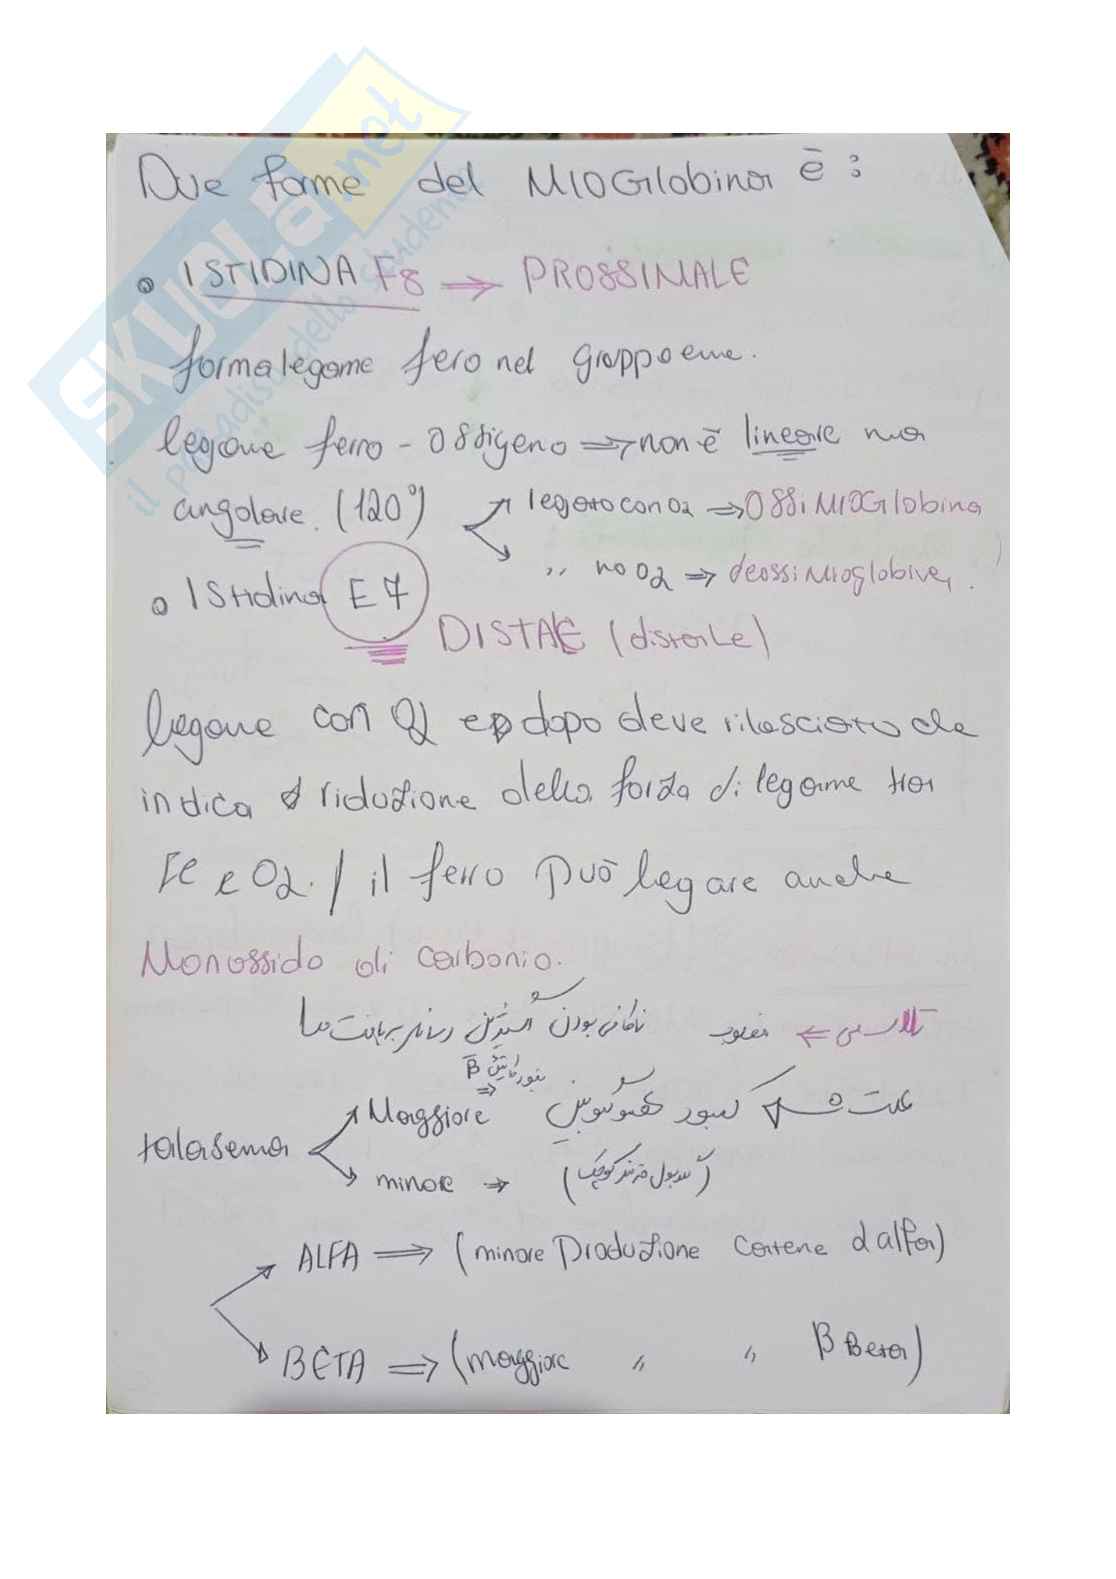 SKUOLA.net
il paradiso dello studente
Due forme del MIOGlobina è :
ISTIDINA F8 ⇒ PROSSIMALE
forma legame fero nel gruppo eme.
legame ferro - Ossigeno ⇒ non è lineare ma
angolare. (120°)
legato con O2 ⇒ OssiMIOGlobina
,, no O2 ⇒ deossiMioglobina.
IStidina E7
DISTALE (distale)
legame con O2 e dopo deve rilasciato che
indica riduzione della forza di legame tra
Fe e O2. / il ferro può legare anche
Monossido di carbonio.
تالاسمی ⇐
ناکافی بودن اکسیژن رسانی به بافت ها
β
talasema
Maggiore
کمبود هموگلوبین
minore ⇒
(گلبول قرمز کوچک)
ALFA ⇒ (minore Produzione catene d alfa)
BETA ⇒ (maggiore " " β Beta)